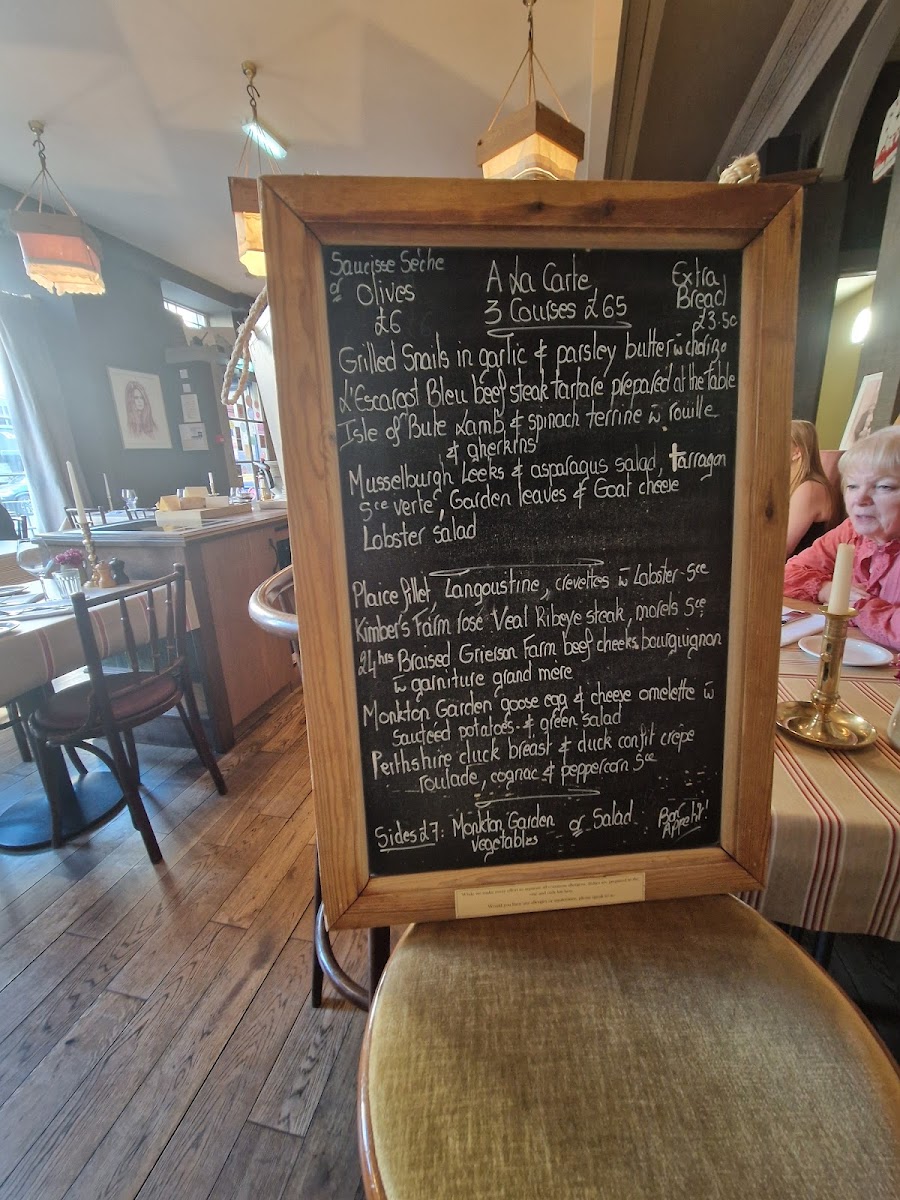 Saucisse Sèche
or Olives
£6
A La Carte
3 Courses £65
Extra
Bread
£3.50
Grilled Snails in garlic & parsley butter w̄ chorizo
L'Escargot Bleu beef steak tartare prepared at the table
Isle of Bute Lamb & spinach terrine w̄ rouille
& gherkins
Musselburgh Leeks & asparagus salad, tarragon
sce verte, Garden leaves & Goat cheese
Lobster salad
Plaice fillet, Langoustine, crevettes w̄ Lobster sce
Kimber's Farm rosé Veal Ribeye steak, morels sce
24hrs Braised Grierson Farm beef cheeks bourguignon
w̄ garniture grand mère
Monkton Garden goose egg & cheese omelette w̄
sautéed potatoes & green salad
Perthshire duck breast & duck confit crêpe
roulade, cognac & peppercorn sce
Sides £7: Monkton Garden or Salad
Vegetables
Bon
Appétit!